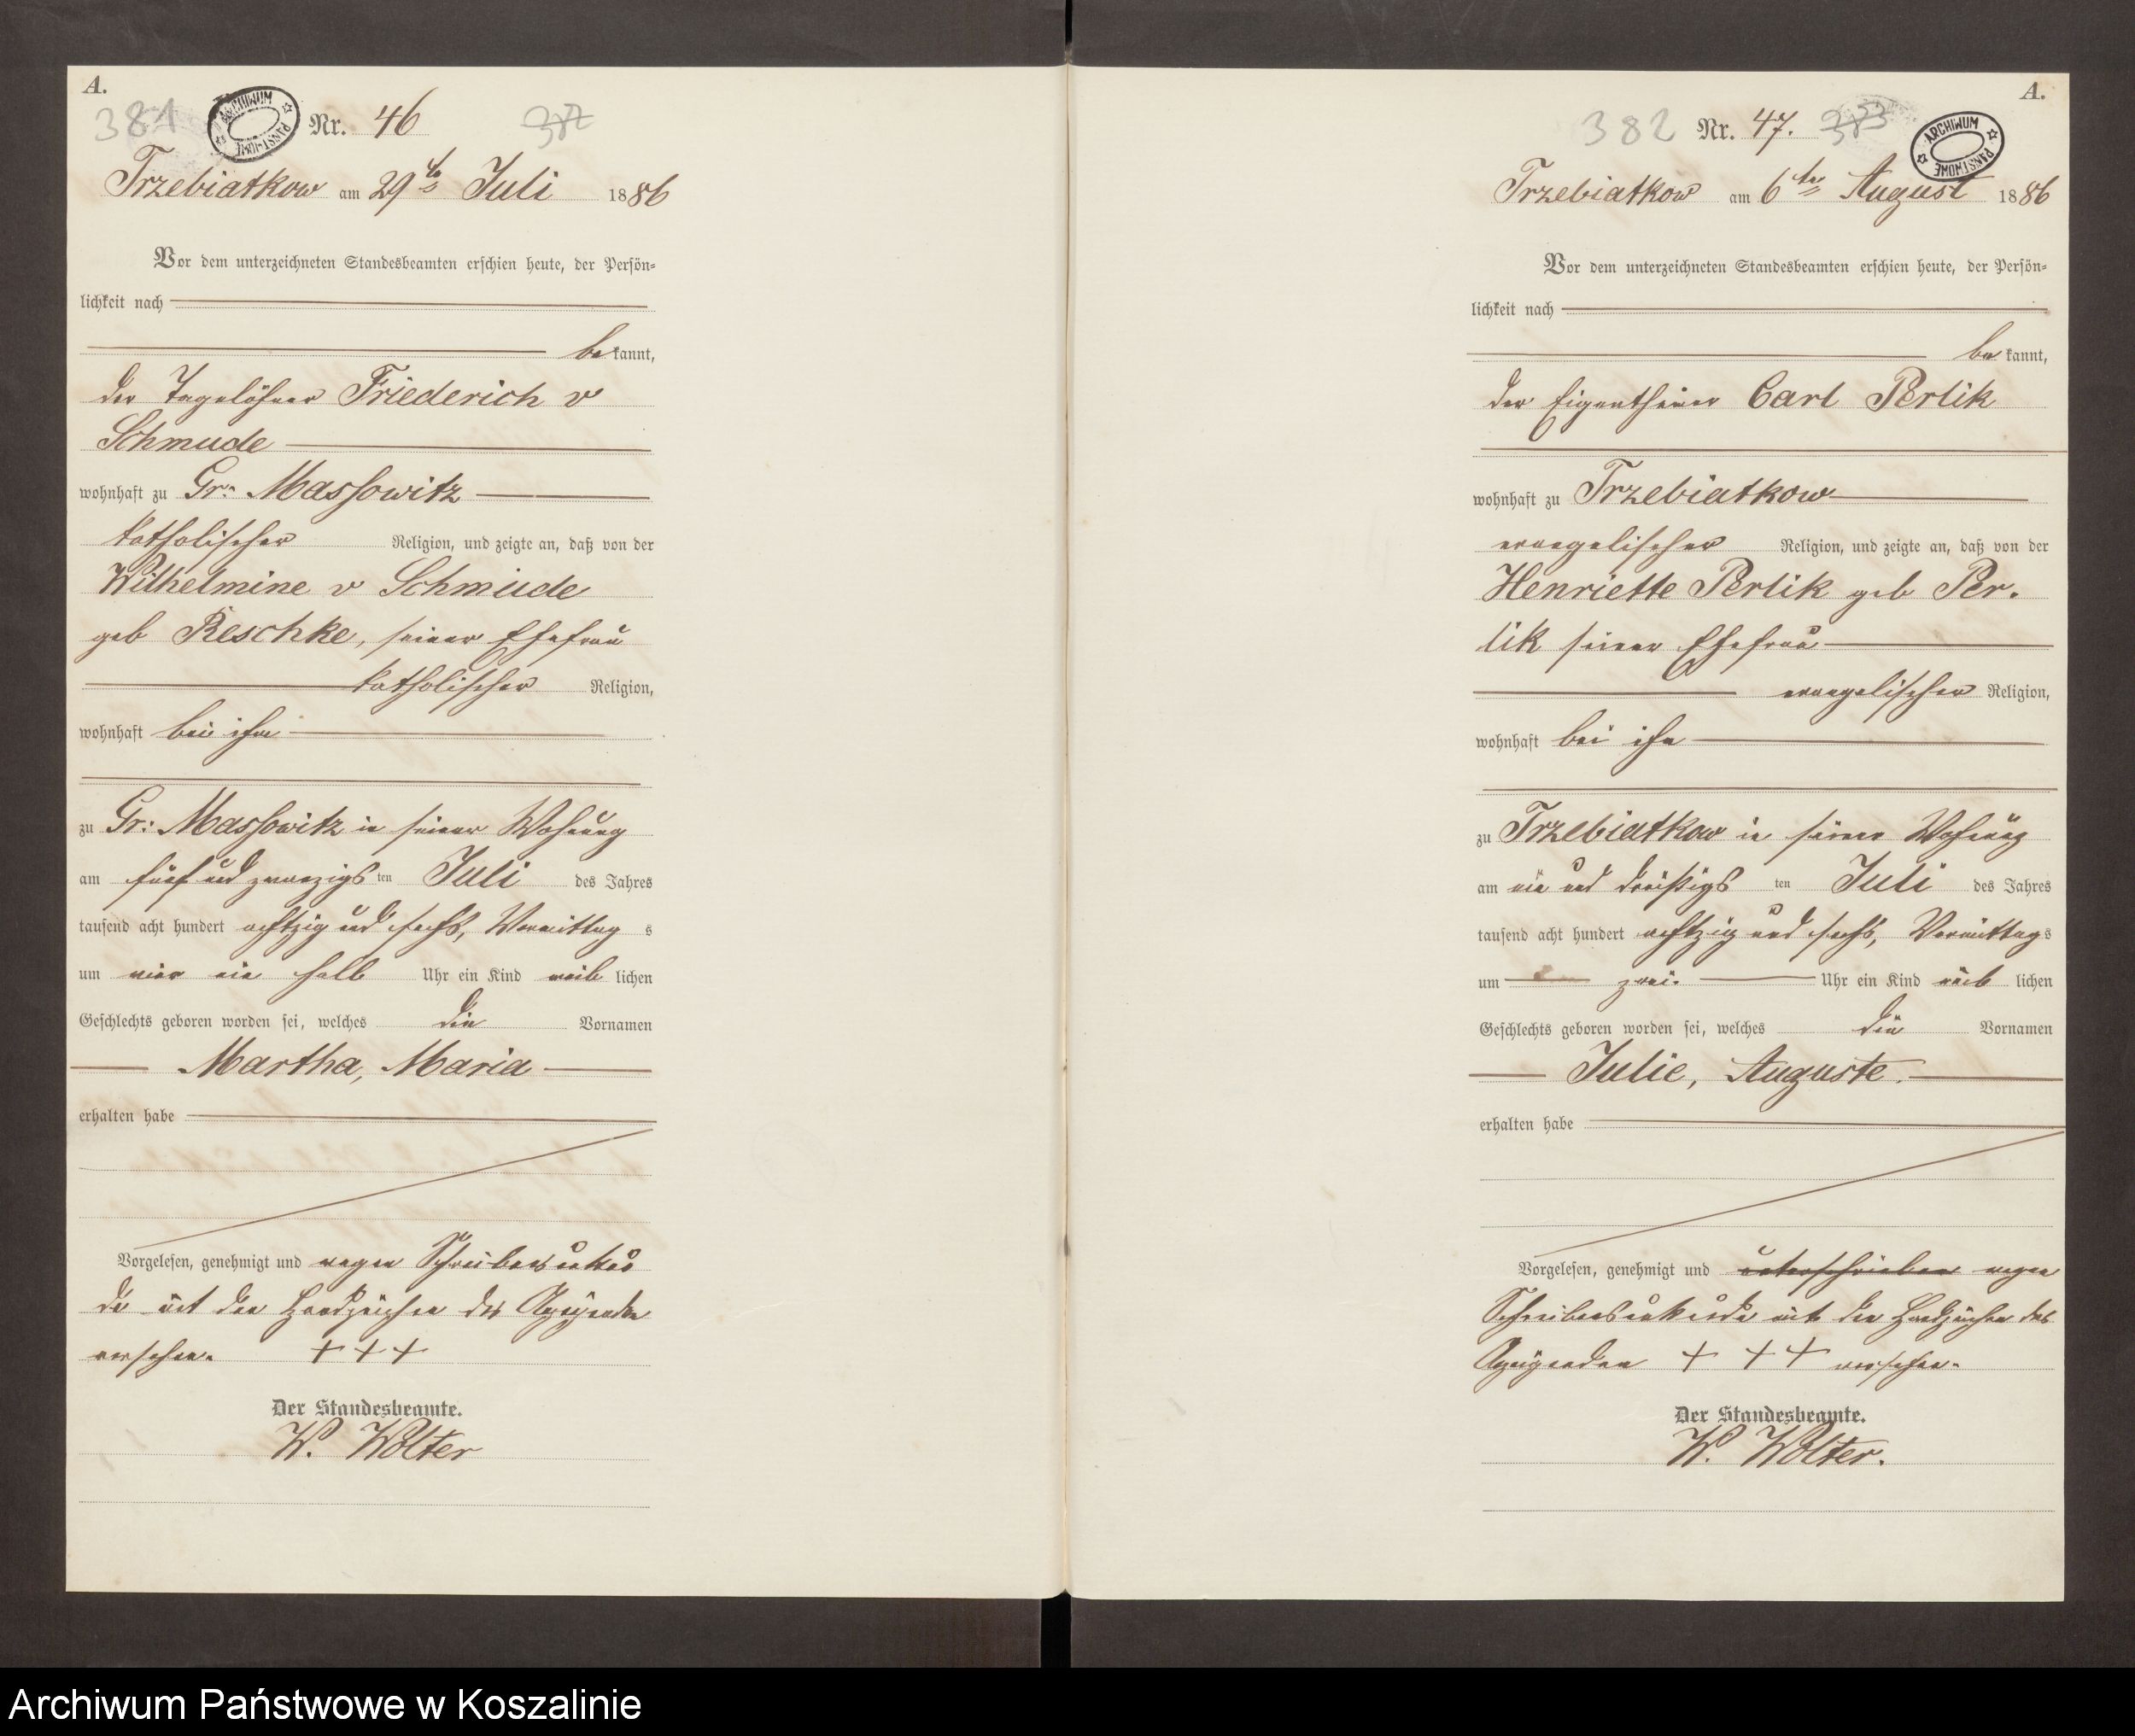 A.
381
ARCHIWUM PAŃSTWOWE
Nr. 46
382
Trzebiatkow am 29ten Juli 1886
Vor dem unterzeichneten Standesbeamten erschien heute, der Persön-
lichkeit nach
be kannt,
der Tagelöhner Friederich v
Schmude
wohnhaft zu Gr: Massowitz
katholischer Religion, und zeigte an, daß von der
Wilhelmine v Schmude
geb Reschke, seiner Ehefrau
katholischer Religion,
wohnhaft bei ihm
zu Gr: Massowitz in seiner Wohnung
am fünf und zwanzigs ten Juli des Jahres
tausend acht hundert achtzig und sechs, Vormittag s
um vier ein halb Uhr ein Kind weib lichen
Geschlechts geboren worden sei, welches die Vornamen
Martha, Maria
erhalten habe
Vorgelesen, genehmigt und wegen Schreibensunkun
de mit den Handzeichen des Anzeigenden
versehen. + + +
Der Standesbeamte.
W. Wolter
A.
382 Nr. 47. 383
ARCHIWUM PAŃSTWOWE
Trzebiatkow am 6ten August 1886
Vor dem unterzeichneten Standesbeamten erschien heute, der Persön-
lichkeit nach
be kannt,
der Eigenthümer Carl Perlik
wohnhaft zu Trzebiatkow
evangelischer Religion, und zeigte an, daß von der
Henriette Perlik geb Per.
lik seiner Ehefrau
evangelischer Religion,
wohnhaft bei ihm
zu Trzebiatkow in seiner Wohnung
am ein und dreißigs ten Juli des Jahres
tausend acht hundert achtzig und sechs, Vormittag s
um zwei. Uhr ein Kind weib lichen
Geschlechts geboren worden sei, welches die Vornamen
Julie, Auguste.
erhalten habe
Vorgelesen, genehmigt und unterschrieben wegen
Schreibensunkunde mit den Handzeichen des
Anzeigenden + + + versehen.
Der Standesbeamte.
W. Wolter.
Archiwum Państwowe w Koszalinie